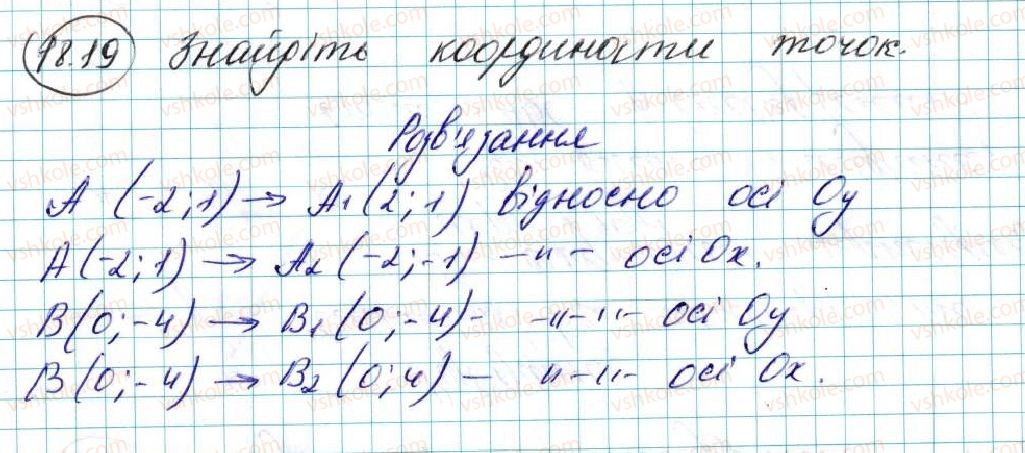 18.19 Знайдіть координати точок.
Розв'язання
A (-2; 1) → A₁ (2; 1) відносно осі Oy
A (-2; 1) → A₂ (-2; -1) -"- осі Ox.
B (0; -4) → B₁ (0; -4) - -"-"- осі Oy
B (0; -4) → B₂ (0; 4) - "-"- осі Ox.